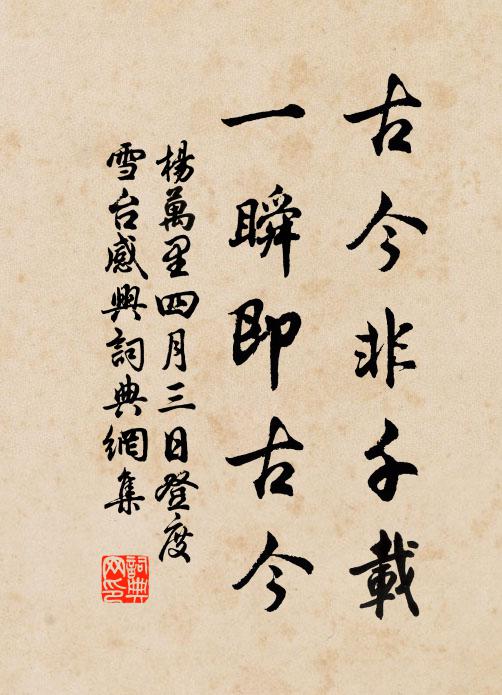 古今非千載
一瞬即古今
楊萬里四月三日登度
雪台感興詞典網集
詞典
网印